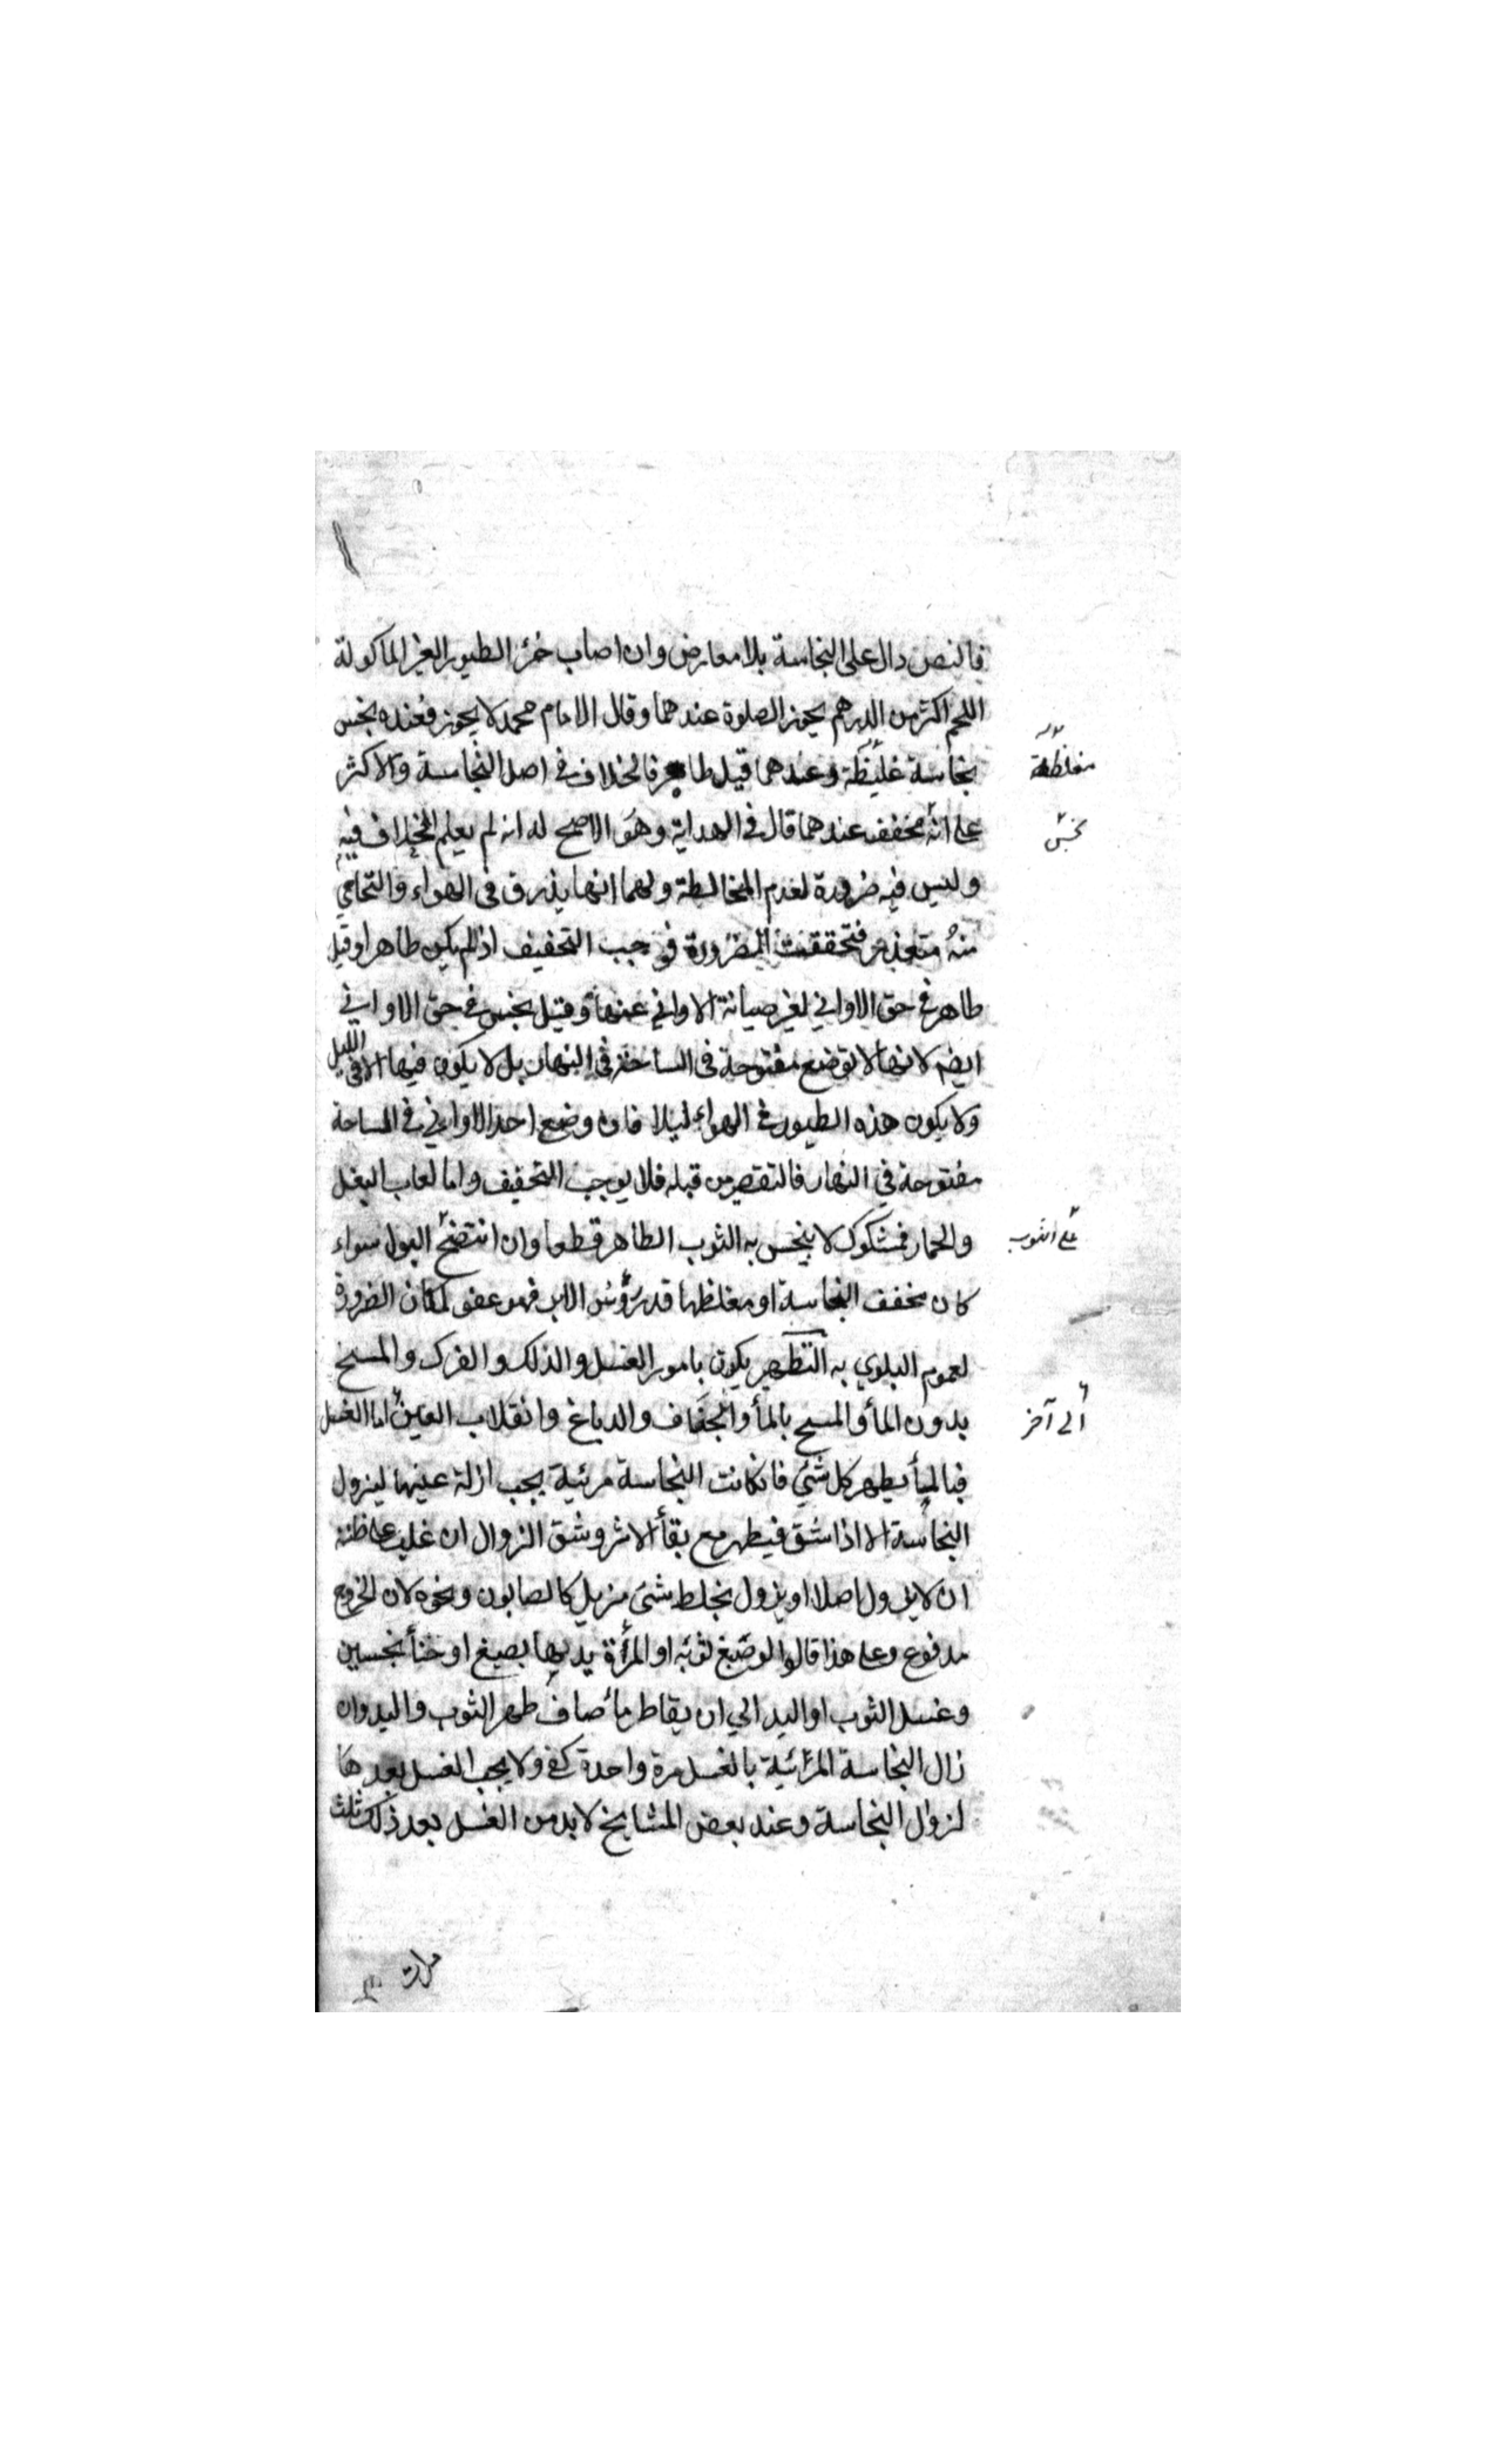 فالنص دال على النجاسة بلا معارض وان اصاب خرئ الطيور الغير الماكولة
اللحم اكثر من الدرهم يجوز الصلوة عندهما وقال الامام محمد لا يجوز فعنده نجس
نجاسة غليظة وعندهما قيل طاهر فالخلاف في اصل النجاسة والاكثر
مغلظة
على انه مخفف عندهما قال في الهداية وهو الاصح له انه لم يعلم الخلاف فيه
نجس
وليس فيه ضرورة لعدم المخالطة ولهما انها يذرق في الهواء والتحامي
منه متعذر فتحققت الضرورة فوجب التخفيف اذ لم يكن طاهرا وقيل
طاهر في حق الاواني لغير صيانة الاواني عنها وقيل نجس في حق الاواني
ايضم لانها لا توضع مفتوحة في الساحة في النهار بل لا يكون فيها الا في الليل
ولا يكون هذه الطيور في الهواء ليلا فان وضع احد الاواني في الساحة
مفتوحة في النهار فالتقصير من قبله فلا يوجب التخفيف واما لعاب البغل
والحمار فمشكوك لا ينجس به الثوب الطاهر قطعا وان انتضح البول سواء
على الثوب
كان مخفف النجاسة او مغلظها قدر رؤس الابر فهو عفو لمكان الضرورة
لعموم البلوي به التطهير يكون بامور الغسل والدلك والفرك والمسح
بدون المأ والمسح بالمأ والجفاف والدباغ وانقلاب العين اما الغسل
الى آخر
فبالمأ يطهر كل شئ فان كانت النجاسة مرئية يجب ازلة عينها ليزول
النجاسة الا اذا شق فيطهر مع بقأ الاثر وشق الزوال ان غلب على ظنه
ان لا يزول اصلا او يزول بخلط شئ مزيل كالصابون ونحوه لان الحرج
مدفوع وعلى هذا قالوا لو صبغ ثوبه او المرأة يديها بصبغ او حنأ نجسين
وغسل الثوب او اليد الي ان يقاطر مأ صاف طهر الثوب واليد وان
زال النجاسة المرئية بالغسل مرة واحدة كفى ولا يجب الغسل بعدها
لزوال النجاسة وعند بعض المشايخ لا بد من الغسل بعد ذلك ثلث
مرات